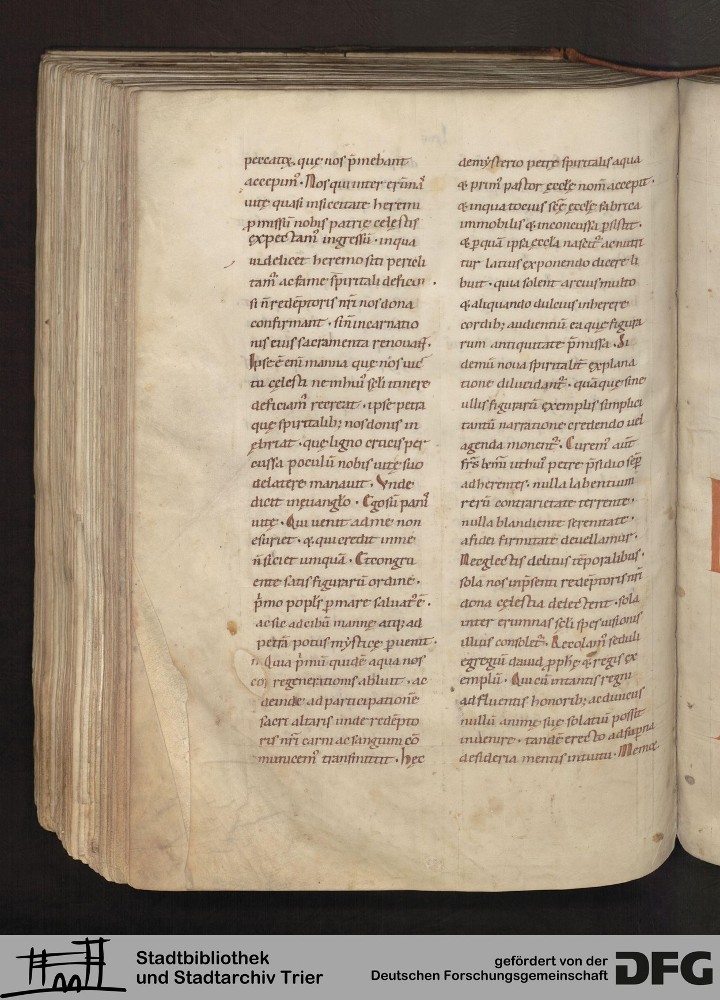 peccatix. quę nos p̄mebant
accepim᷒. Nos qui inter erūna᷒
uitę quasi insiccitate heremi
p̱missū nobis patrię cęlestis
expectam᷒ ingressū. inqua
uidelicet heremo siti pericli
tam᷒ ac fame sp̄iritali deficim᷒.
si n̄ redēptoris nr̄i nos dona
confirmant. sin̄ incarnatio
nis eius sacramenta renouant.
Ipse ē enī manna quę nos uic
tu cęlesti ne mūdi scl̄i itinere
deficiam᷒ recreat. ipse petra
que spiritalib; nos donis in
ębriat. quę ligno crucis per
cussa poculū nobis uitę suo
delatere manauit. Vnde
dicit ineuanglio. Ego sū pani᷒
uitę. Qui uenit ad me non
esuriet. & qui credit inme
n̄ sitiet umquā. Et congru
ente satis figurarū ordine.
p̄mo popl̄s p̱ mare saluat᷒ ē.
ac sic ad cibū mannę atq; ad
petrā potus mysticę p̱uenit.
Quia p̄mū quidē aqua nos
regenerationis abluit. ac
deinde ad participationē
sacri altaris unde redēpto
ris nr̄i carni ac sanguini cō
municem᷒ transmittit. hęc
de mysterio petrę spiritalis aqua
& prim᷒ pastor ęcclę nom̄ accepit.
& inqua toci᷒ sc̄ę ęcclę fabrica
immobilis & inconcussa p̱sistit.
& p̱ quā ipsa ęccla nascit᷒ ac nutri
tur latius exponendo dicere li
buit. quia solent arcius multo
& aliquando dulcius inherere
cordib; audientiū ea que figura
rum antiquitate p̄missa. Si
demū noua spiritalit̄ explana
tione dilucidant᷒. quā que sine
ullis figurarū exemplis simplici
tantū narratione credendo uel
agenda monent᷒. Curem᷒ aūt
frs̄ km̄i uthui᷒ petrę p̱sidio sēp̱
adherentes. nulla labentium
rerū contrarietate terrente.
nulla blandiente serenitate.
a fidei firmitate deuellamur.
Neglectis delitiis tēporalibus.
sola nos inp̱senti redēptoris nr̄i
dona cęlestia delectent. sola
inter erumnas scl̄i spes uisionis
illius consolet᷒. Recolam᷒ seduli
egregiū dauid p̱ph̄ę & regis ex
emplū. Qui cū intantis regni
adfluentis honorib; ac diuiciis
nullū animę suę solatiū possit
inuenire. tandē erecto ad sup̱na
desideria mentis intuitu. Memor
Stadtbibliothek
und Stadtarchiv Trier
gefördert von der
Deutschen Forschungsgemeinschaft
DFG